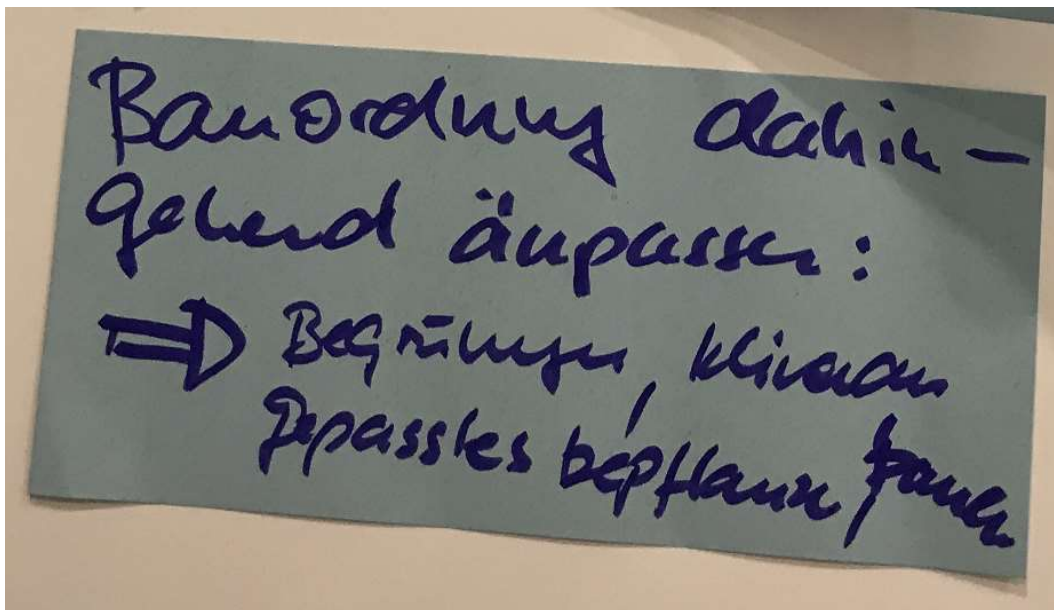 Bauordnung dahin-
gehend anpassen:
⇒ Begrünungen, kliman
gepasstes bepflanzen / bauen